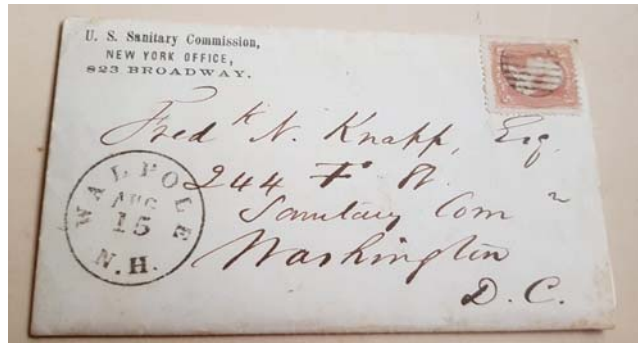 U. S. Sanitary Commission,
NEW YORK OFFICE,
823 BROADWAY.
Fredk N. Knapp, Esq.
244 F St.
Sanitary Comn
Washington
D. C.
WALPOLE
AUG
15
N.H.